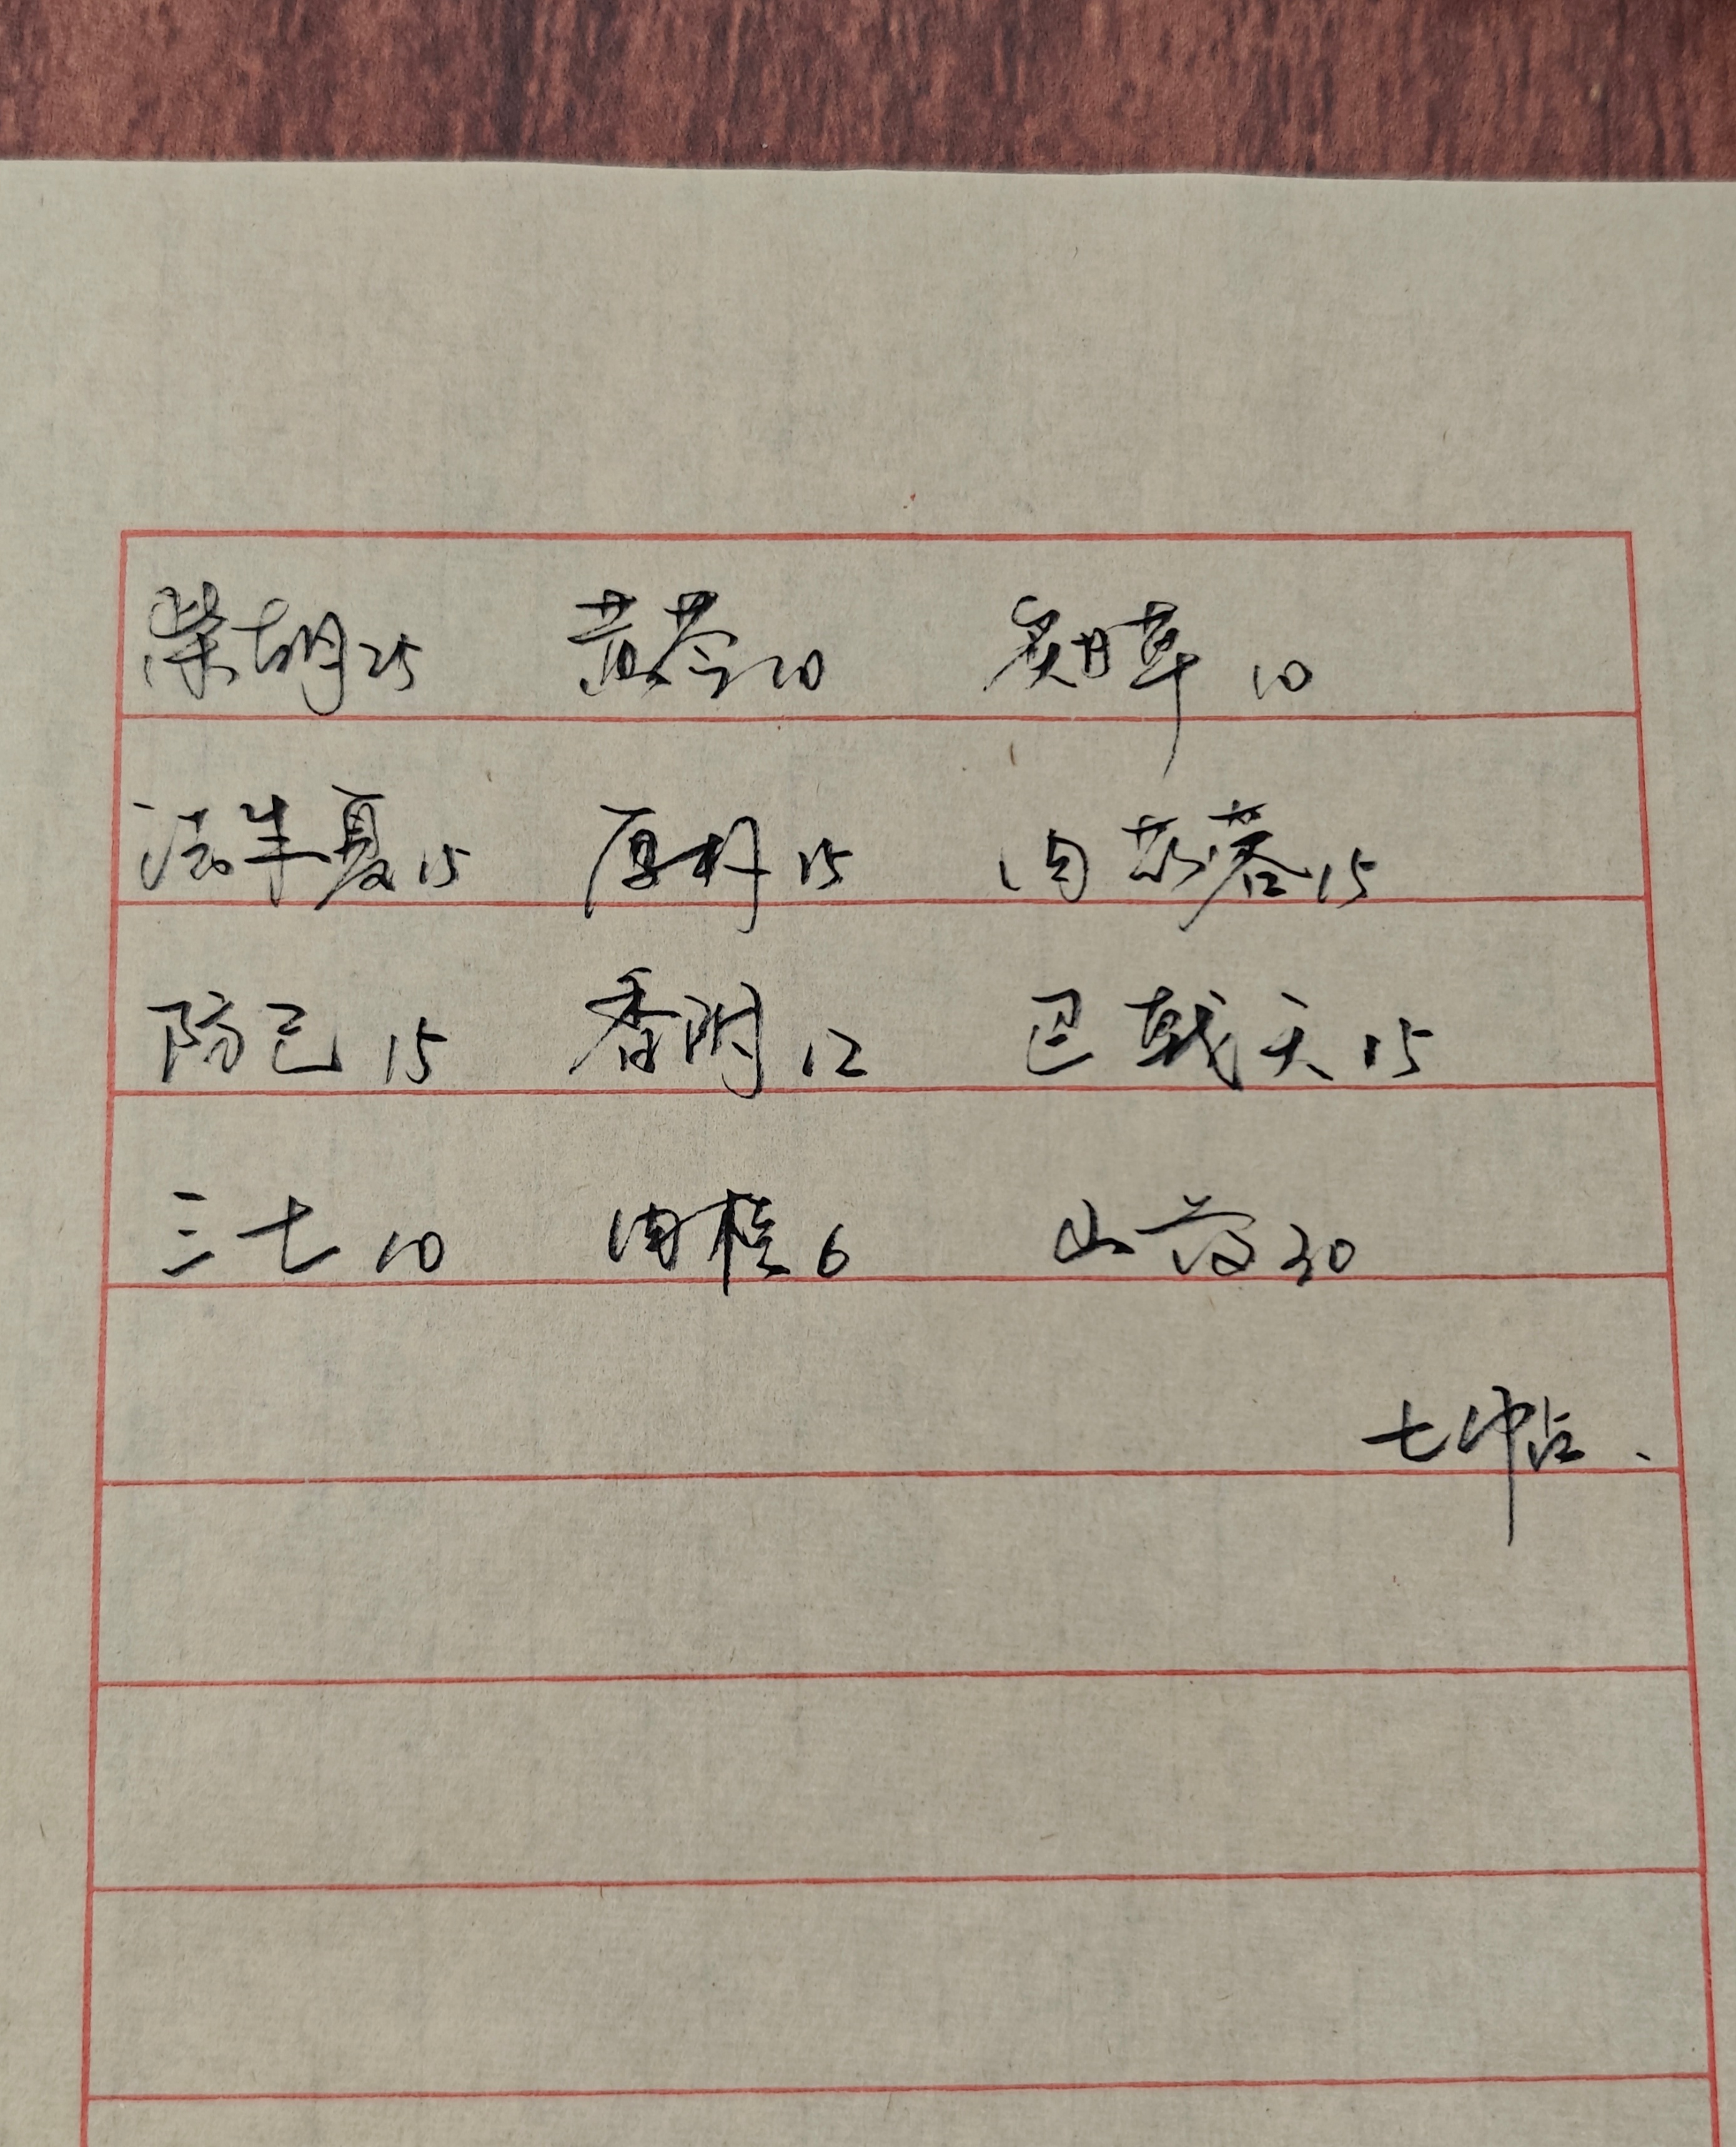 柴胡25 黄芩10 炙甘草10
法半夏15 厚朴15 肉苁蓉15
防己15 香附12 巴戟天15
三七10 肉桂6 山药30
七帖.